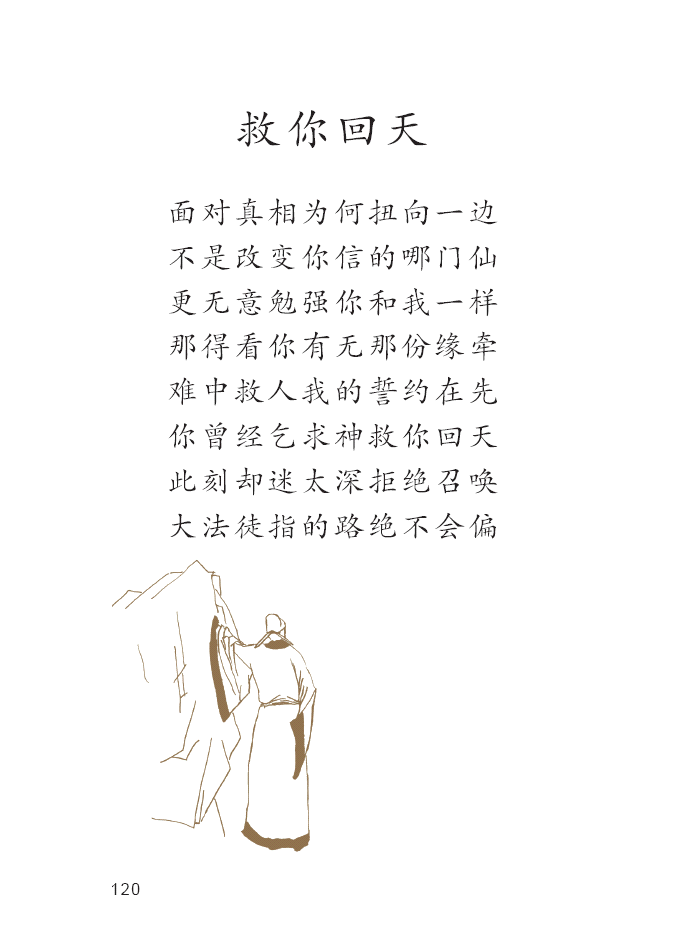 救你回天
面对真相为何扭向一边
不是改变你信的哪门仙
更无意勉强你和我一样
那得看你有无那份缘牵
难中救人我的誓约在先
你曾经乞求神救你回天
此刻却迷太深拒绝召唤
大法徒指的路绝不会偏
120